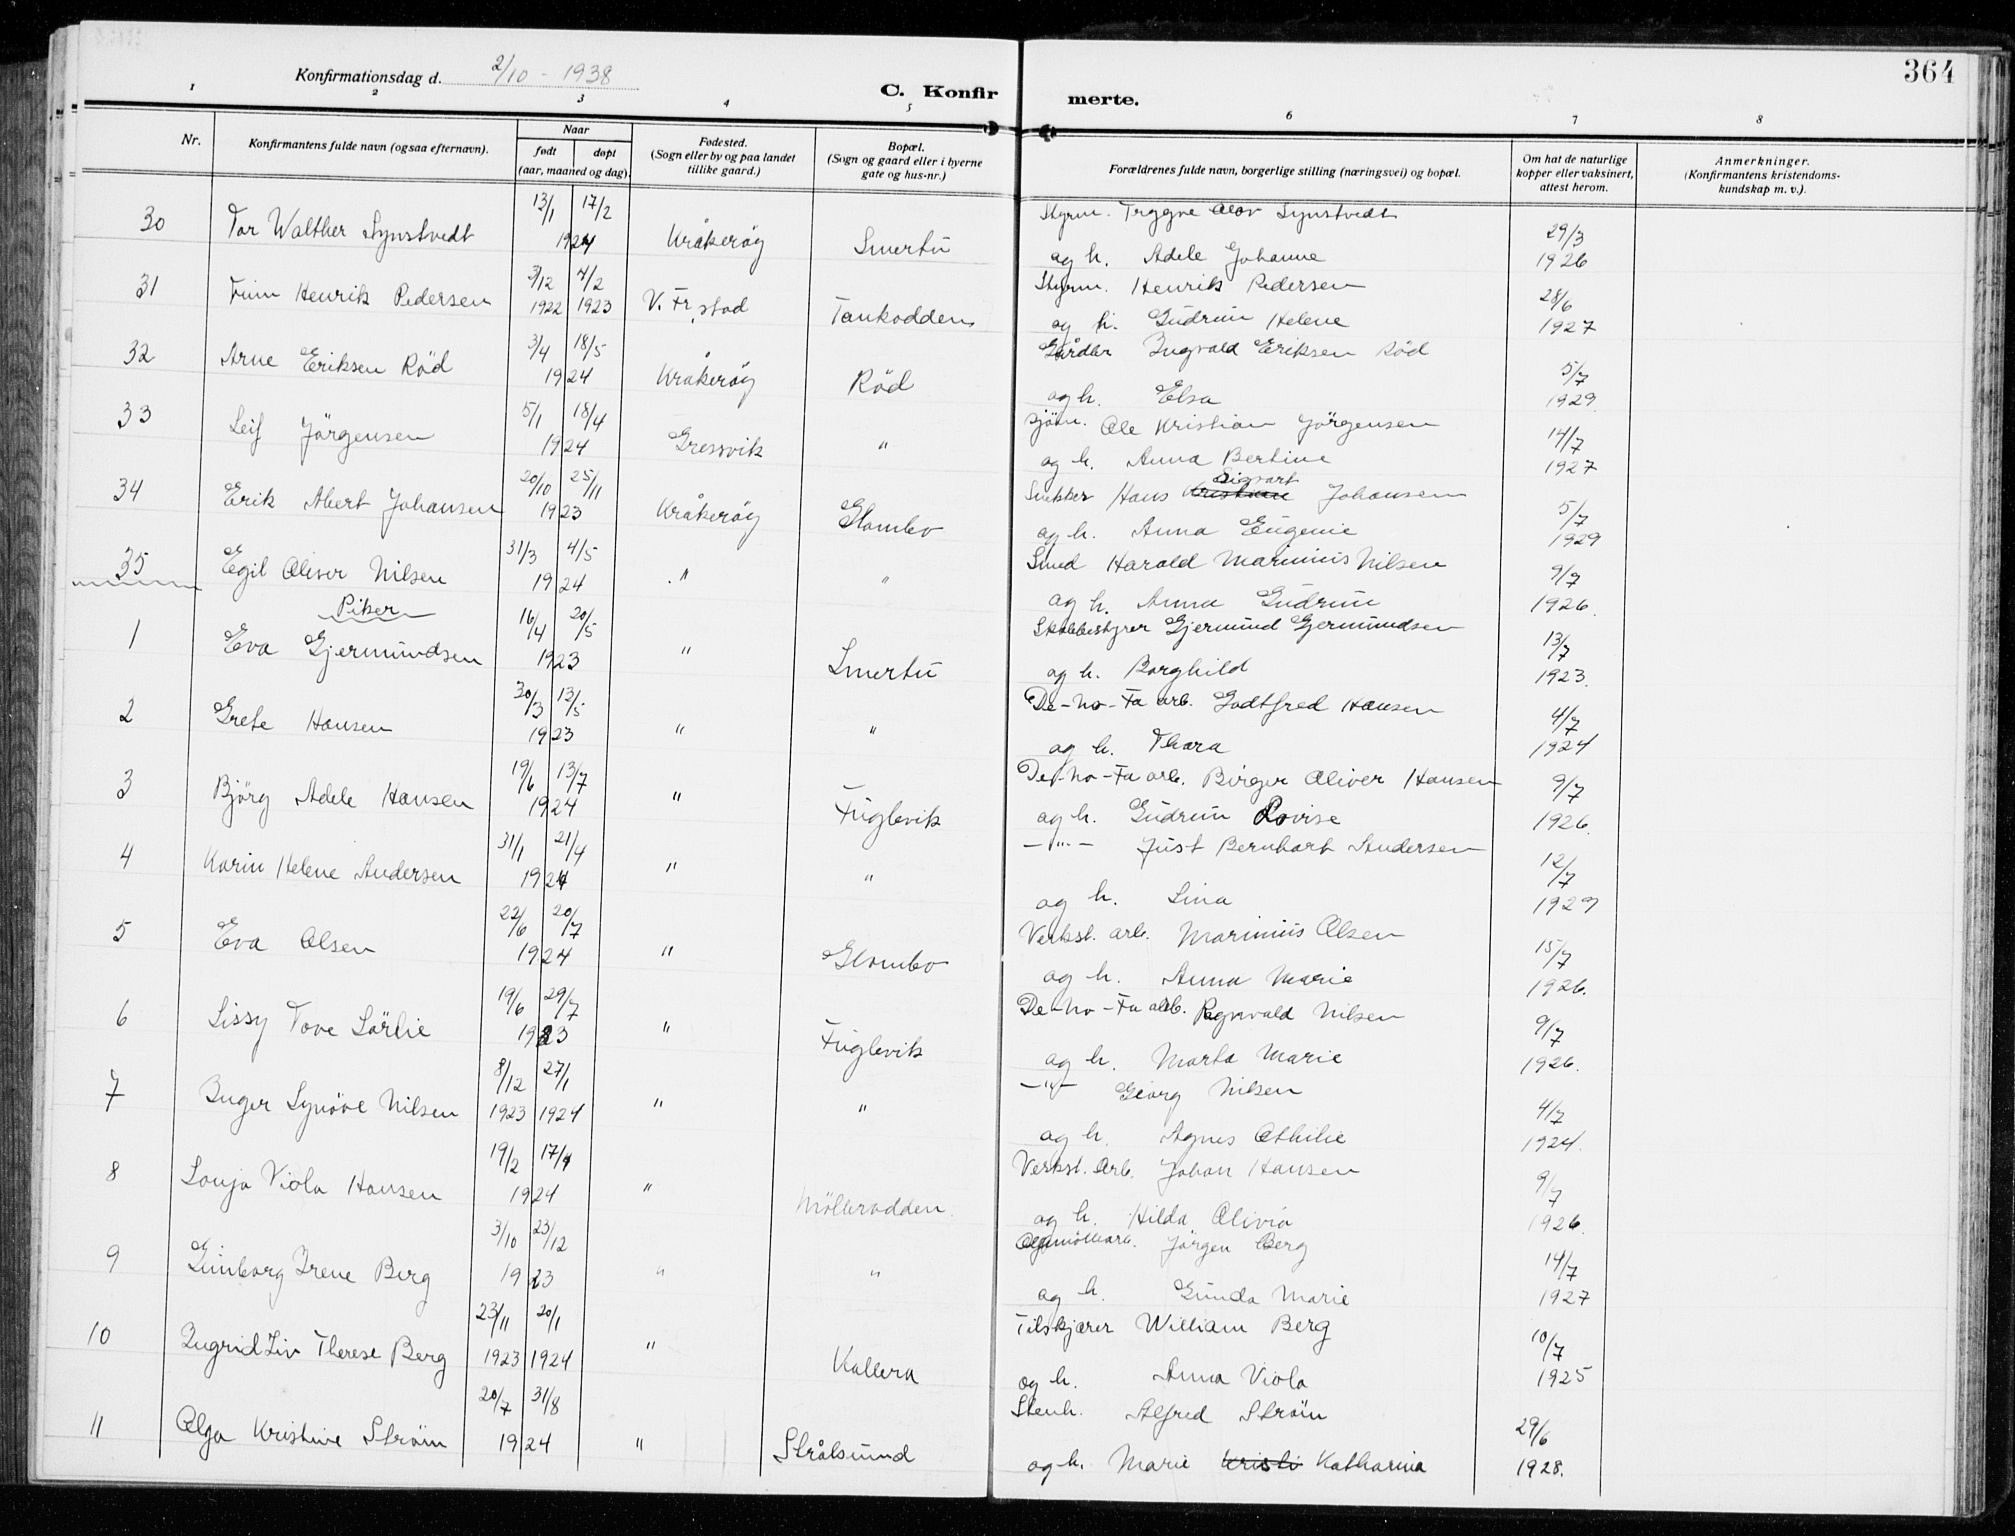 364
Konfirmationsdag d. 2/10 - 1938
C. Konfir merte.
1 2 3 4 5 6 7 8
Nr.
Konfirmantens fulde navn (ogsaa efternavn).
Naar
født døpt
(aar, maaned og dag).
Fødested.
(Sogn eller by og paa landet
tillike gaard.)
Bopæl.
(Sogn og gaard eller i byerne
gate og hus-nr.)
Forældrenes fulde navn, borgerlige stilling (næringsvei) og bopæl.
Om hat de naturlige
kopper eller vaksinert,
attest herom.
Anmerkninger.
(Konfirmantens kristendoms-
kundskap m. v.).
30 Tor Walther Synstvedt 13/1 17/2 1924 Kråkeröy Smertu Styrm. Trygve Olav Synstvedt
og h. Adele Johanne 29/3 1926
31 Finn Henrik Pedersen 3/12 1922 4/2 1923 V. Fr.stad Tankodden Styrm. Henrik Pedersen
og h. Gudrun Helene 28/6 1927
32 Arne Eriksen Röd 3/4 18/5 1924 Kråkeröy Röd Gårdbr Ingvald Eriksen Röd
og h. Elsa 5/7 1929
33 Leif Jörgensen 5/1 18/4 1924 Gressvik " Sjöm. Ole Kristian Jörgensen
og h. Anna Bertine 14/7 1927
34 Erik Albert Johansen 20/10 25/11 1923 Kråkeröy Glombo Snekker Hans Kristian Sigvart Johansen
og h. Anna Eugenie 5/7 1929
35 Egil Oliver Nilsen 31/3 4/5 1924 " " Smed Harald Marinius Nilsen
og h. Anna Gudrun 9/7 1926.
Piker
1 Eva Gjermundsen 16/4 20/5 1923 " Smertu Skolebestyrer Gjermund Gjermundsen
og h. Borghild 13/7 1923.
2 Grete Hansen 30/3 13/5 1923 " " De-No-Fa arb. Godtfred Hansen
og h. Thora 4/7 1924
3 Björg Adele Hansen 19/6 13/7 1924 " Fuglevik De-No-Fa arb. Birger Oliver Hansen
og h. Gudrun Lovise 9/7 1926.
4 Karin Helene Andersen 31/1 21/4 1924 " " -"- Just Bernhart Andersen
og h. Lina 12/7 1929
5 Eva Olsen 22/6 20/7 1924 " Glombo Verkst. arb. Marinius Olsen
og h. Anna Marie 15/7 1926.
6 Lissy Tove Sörlie 19/6 29/7 1923 " Fuglevik De-No-Fa arb. Ragnvald Nilsen
og h. Marta Marie 9/7 1926.
7 Inger Synöve Nilsen 8/12 1923 27/1 1924 " " -"- Georg Nilsen
og h. Agnes Othilie 4/7 1924.
8 Sonja Viola Hansen 19/2 17/4 1924 " Möllerodden. Verkst. Arb. Johan Hansen
og h. Hilda Olivia 9/7 1926.
9 Gunborg Irene Berg 3/10 23/12 1923 " " Jörgen Berg
og h. Gunda Marie 14/7 1927
10 Ingrid Liv Therese Berg 23/11 1923 20/1 1924 " Kallera Tilskjærer William Berg
og h. Anna Viola 10/7 1925
11 Olga Kristine Ström 20/7 31/8 1924 " Strålsund Stenh. Alfred Ström
og h. Marie Kristi Katharina 29/6 1928.